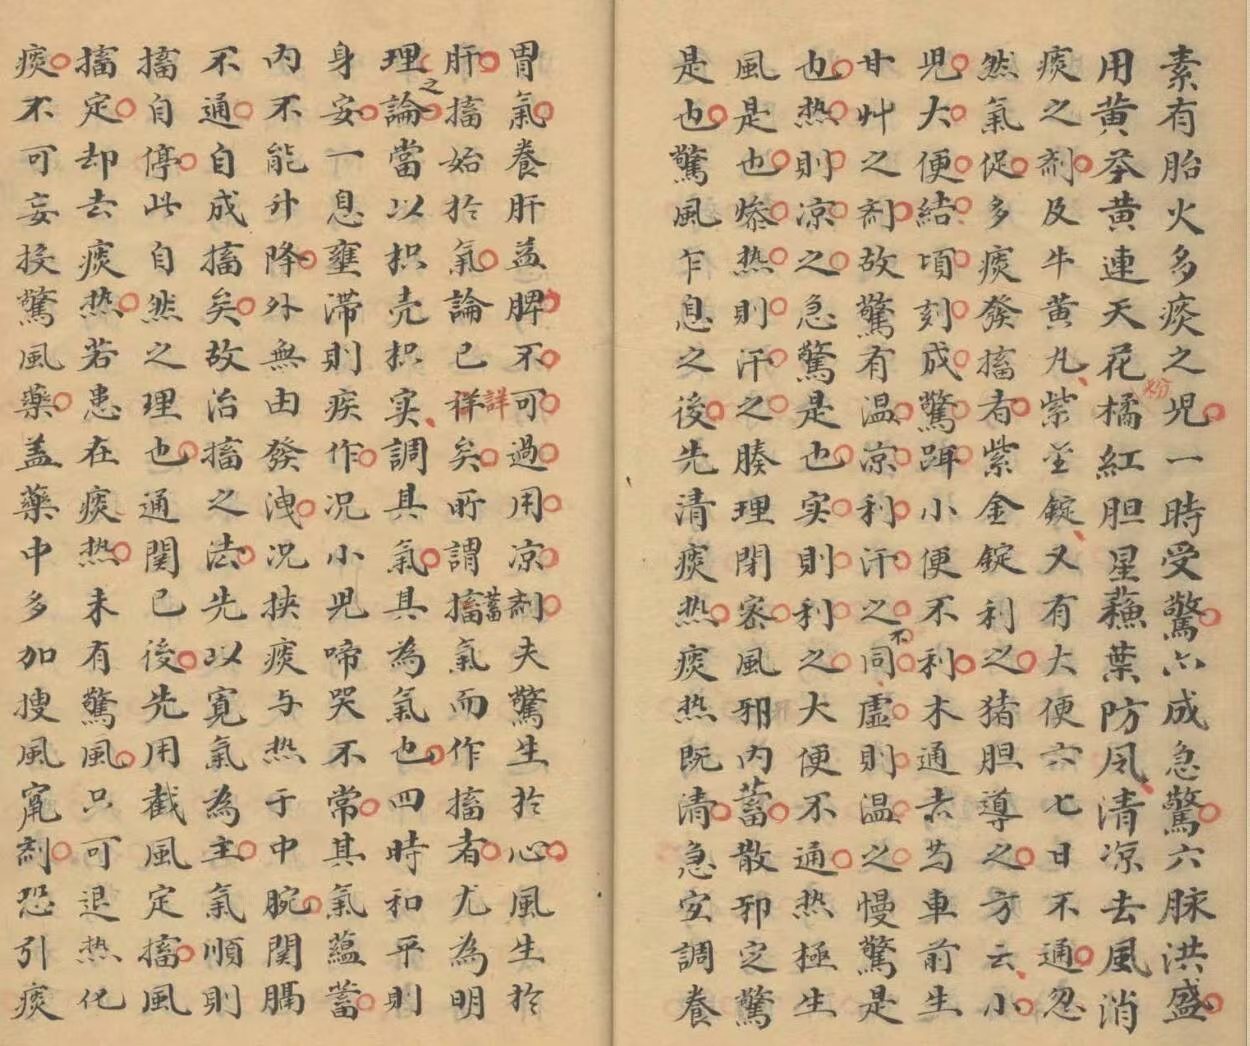 素有胎火多痰之児一時受驚亦成急驚六脉洪盛
用黄芩黄連天花粉橘紅胆星蘓葉防风清凉去風消
痰之剤及牛黄丸紫金錠又有大便六七日不通忽
然氣促多痰發搐者紫金錠利之猪胆導之方云小
児大便結頃刻成驚蹕小便不利木通赤芍車前生
甘艸之剤故驚有温凉利汗之不同虚則温之慢驚是
也热則凉之急驚是也实則利之大便不通热極生
風是也㷫热則汗之腠理閉密風邪内蓄散邪定驚
是也驚風乍息之後先清痰热痰热既清急宜調養
胃氣養肝益脾不可過用凉剤夫驚生於心風生於
肝搐始於氣論已祥詳矣所謂搐蓄氣而作搐者尤為明
理之論當以枳壳枳实調其氣其為氣也四時和平則
身安一息壅滞則疾作况小児啼哭不常其氣蘊蓄
内不能升降外無由發洩况挟痰与热于中腕関膈
不通自成搐矣故治搐之法先以寛氣為主氣順則
搐自停此自然之理也通関已後先用截風定搐風
搐定却去痰热若患在痰热未有驚風只可退热化
痰不可妄投驚風藥盖藥中多加搜風竄剤恐引痰